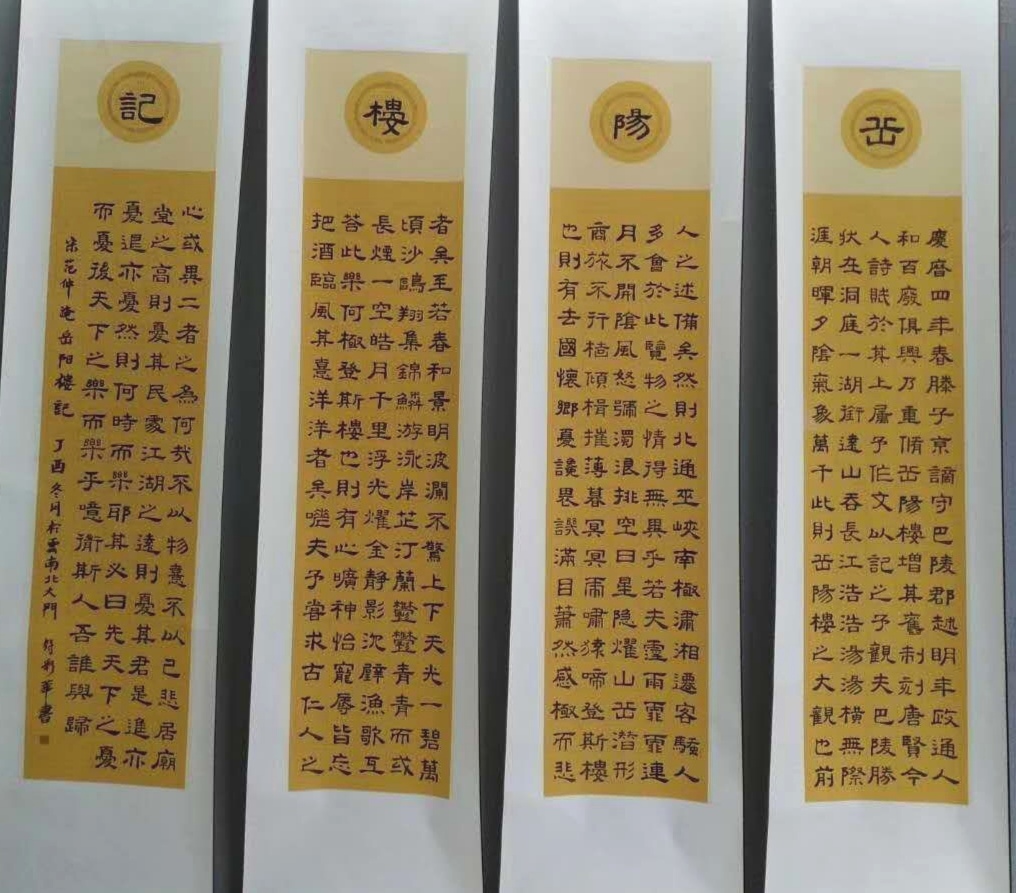 岳
慶曆四年春滕子京謫守巴陵郡越明年政通人
和百廢俱興乃重脩岳陽樓增其舊制刻唐賢今
人詩賦於其上屬予作文以記之予觀夫巴陵勝
狀在洞庭一湖銜遠山吞長江浩浩湯湯橫無際
涯朝暉夕陰氣象萬千此則岳陽樓之大觀也前
陽
人之述備矣然則北通巫峽南極瀟湘遷客騷人
多會於此覽物之情得無異乎若夫霪雨霏霏連
月不開陰風怒號濁浪排空日星隱燿山岳潛形
商旅不行檣傾楫摧薄暮冥冥虎嘯猿啼登斯樓
也則有去國懷鄉憂讒畏譏滿目蕭然感極而悲
樓
者矣至若春和景明波瀾不驚上下天光一碧萬
頃沙鷗翔集錦鱗游泳岸芷汀蘭鬱鬱青青而或
長煙一空皓月千里浮光燿金靜影沉璧漁歌互
答此樂何極登斯樓也則有心曠神怡寵辱皆忘
把酒臨風其喜洋洋者矣嗟夫予嘗求古仁人之
記
心或異二者之為何哉不以物喜不以己悲居廟
堂之高則憂其民處江湖之遠則憂其君是進亦
憂退亦憂然則何時而樂耶其必曰先天下之憂
而憂後天下之樂而樂乎噫微斯人吾誰與歸
宋范仲淹岳阳樓記 丁酉冬月於雲南北大門 華書